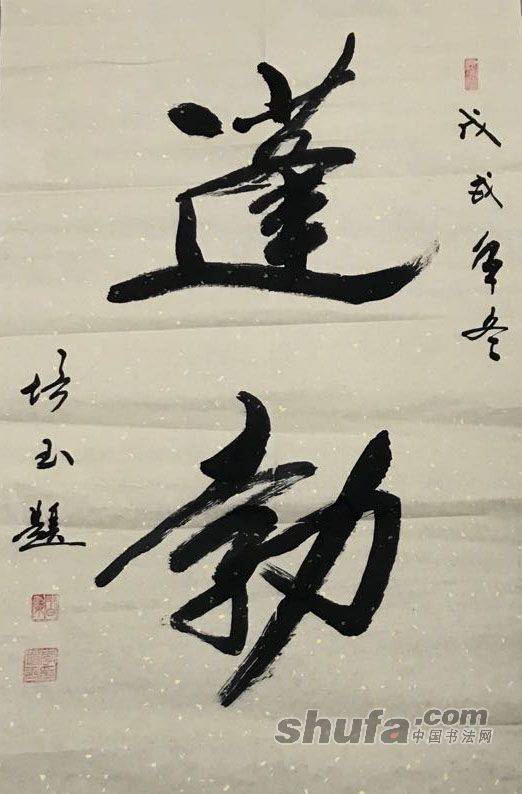 戊戌年冬
蓬勃
培玉题
shufa.com
中国书法网